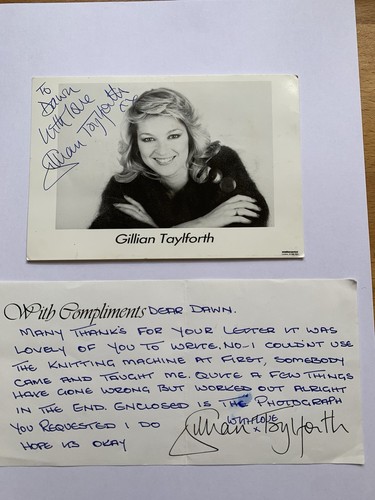 To
Dawn
With Love
Gillian Taylforth
xx
Gillian Taylforth
With Compliments DEAR DAWN.
MANY THANK'S FOR YOUR LETTER IT WAS
LOVELY OF YOU TO WRITE. NO-I COULDN'T USE
THE KNITTING MACHINE AT FIRST, SOMEBODY
CAME AND TAUGHT ME. QUITE A FEW THINGS
HAVE GONE WRONG BUT WORKED OUT ALRIGHT
IN THE END. ENCLOSED IS THE PHOTOGRAPH
YOU REQUESTED I DO
HOPE ITS OKAY
WITH LOVE
x
Gillian Taylforth